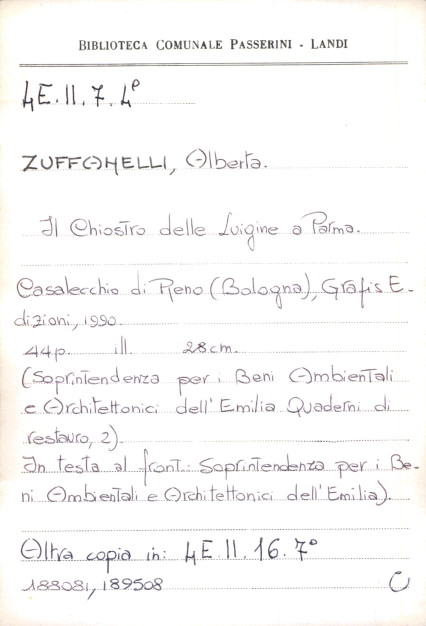 BIBLIOTECA COMUNALE PASSERINI - LANDI
4E.II.7.4º
ZUFFANELLI, Alberta.
Il Chiostro delle Luigine a Parma.
Casalecchio di Reno (Bologna), Grafis E-
dizioni, 1990.
44p. ill. 28cm.
(Soprintendenza per i Beni Ambientali
e Architettonici dell'Emilia Quaderni di
restauro, 2).
In testa al front.: Soprintendenza per i Be-
ni Ambientali e Architettonici dell'Emilia).
Altra copia in: 4E.II.16.7º
188081, 189508